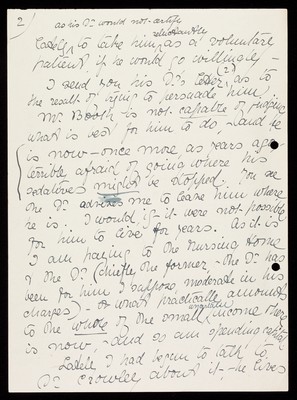 2
as his Dr. would not certify
reluctantly
lately, to take him, as a voluntary
patient if he would go willingly -
I send you his Dr's letter (2) as to
the result of trying to persuade him.
Mr. Booth is not capable of judging
what is best for him to do, - and he
is now - once more as years ago -
terribly afraid of going where his
sedatives might be stopped. You see
the Dr. advises me to leave him where
he is. I would if it were not possible
for him to live for years. As it is
I am paying to the Nursing Home
& the Dr. (chiefly the former, - the Dr. has
been for him I suppose, moderate in his
charges) - what practically amounts
to the whole of the small income there
is now, - and so am spending capital
Lately I had begun to talk to
Dr. Crowley about it, - he lives